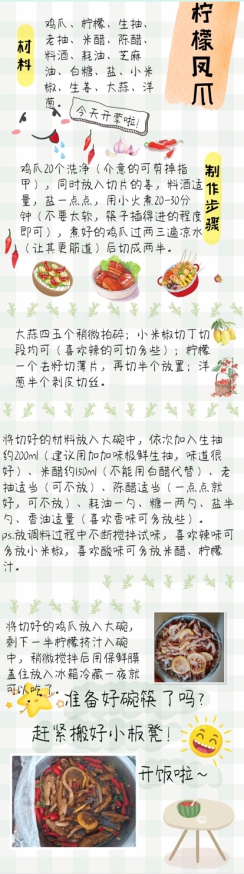 柠檬凤爪
材料
鸡爪、柠檬、生抽、
老抽、米醋、陈醋、
料酒、耗油、芝麻
油、白糖、盐、小米
椒、生姜、大蒜、洋
葱。
今天开荤啦!
制作步骤
鸡爪20个洗净（介意的可剪掉指
甲），同时放入切片的姜，料酒适
量，盐一点点，用小火煮20-30分
钟（不要太软，筷子插得进的程度
即可），煮好的鸡爪过两三遍凉水
（让其更筋道）后切成两半。
大蒜四五个稍微拍碎；小米椒切丁切
段均可（喜欢辣的可切多些）；柠檬
一个去籽切薄片，再切半个放置；洋
葱半个剥皮切丝。
将切好的材料放入大碗中，依次加入生抽
约200ml（建议用加加味极鲜生抽，味道很
好）、米醋约150ml（不能用白醋代替）、老
抽适当（可不放）、陈醋适当（一点点就
好，可不放）、耗油一勺、糖一两勺、盐半
勺、香油适量（喜欢香味可多放些）。
ps.放调料过程中不断搅拌试味，喜欢辣味可
多放小米椒，喜欢酸味可多放米醋、柠檬
汁。
将切好的鸡爪放入大碗，
剩下一半柠檬挤汁入碗
中，稍微搅拌后用保鲜膜
盖住放入冰箱冷藏一夜就
可以吃了。
准备好碗筷了吗?
赶紧搬好小板凳!
开饭啦~